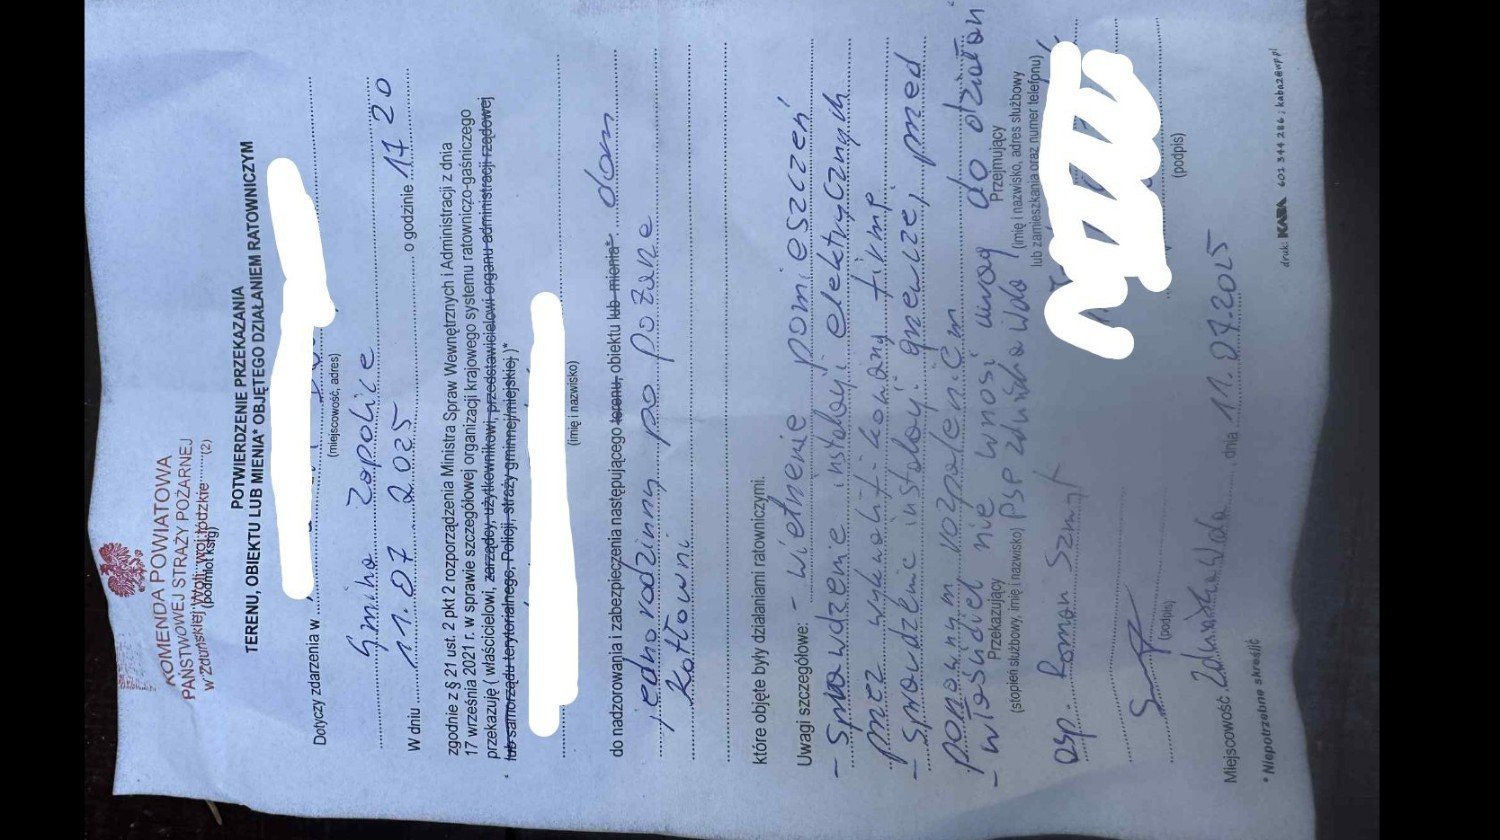 KOMENDA POWIATOWA
PAŃSTWOWEJ STRAŻY POŻARNEJ
w Zduńskiej Woli, woj. łódzkie (2)
(podmiot ksrg)
POTWIERDZENIE PRZEKAZANIA
TERENU, OBIEKTU LUB MIENIA* OBJĘTEGO DZIAŁANIEM RATOWNICZYM
Dotyczy zdarzenia w
(miejscowość, adres)
gmina Zapolice
W dniu 11.07 2025 o godzinie 17 20
zgodnie z § 21 ust. 2 pkt 2 rozporządzenia Ministra Spraw Wewnętrznych i Administracji z dnia
17 września 2021 r. w sprawie szczegółowej organizacji krajowego systemu ratowniczo-gaśniczego
przekazuję ( właścicielowi, zarządcy, użytkownikowi, przedstawicielowi organu administracji rządowej
lub samorządu terytorialnego, Policji, straży gminnej/miejskiej )*
(imię i nazwisko)
do nadzorowania i zabezpieczenia następującego terenu, obiektu lub mienia* dom
jednorodzinny po pożarze
kotłowni
które objęte były działaniami ratowniczymi.
Uwagi szczegółowe: - wietrzenie pomieszczeń
- sprawdzenie instalacji elektrycznych
przez wykwalifikowaną firmę
- sprawdzenie instalacji grzewczej, przed
ponownym rozpaleniem
- właściciel nie wnosi uwag do działań
Przekazujący
(stopień służbowy, imię i nazwisko) PSP Zduńska Wola
Przejmujący
(imię i nazwisko, adres służbowy
lub zamieszkania oraz numer telefonu)
asp. Roman Szmyt
(podpis)
(podpis)
Miejscowość Zduńska Wola, dnia 11.07.2025
* Niepotrzebne skreślić
druk: KABA 601 344 286 ; kaba2@wp.pl